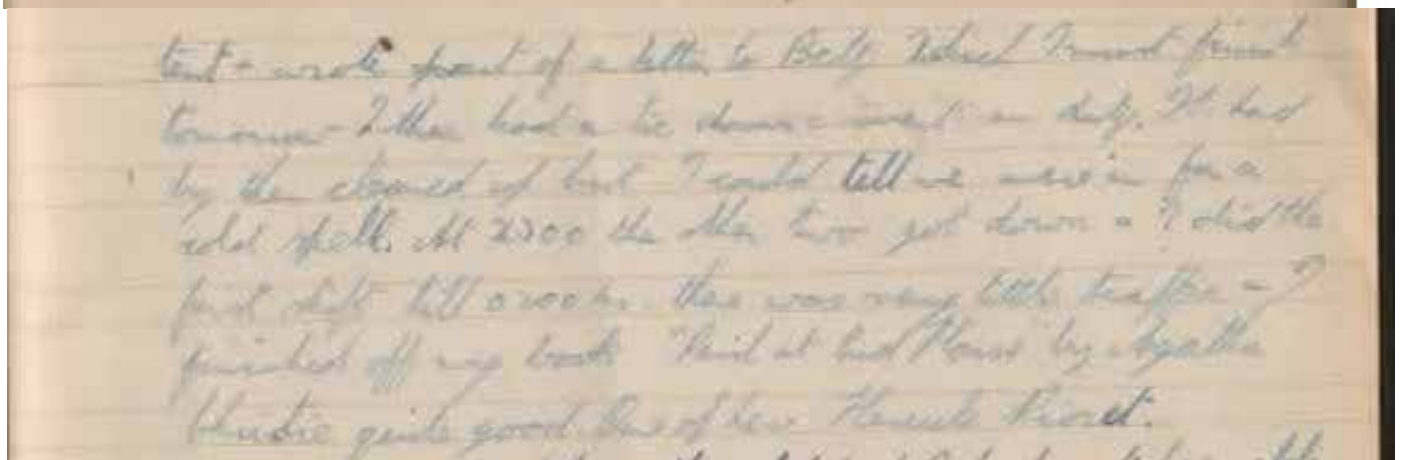 tent - wrote part of a letter to Betty which I must finish
tomorrow - I then had a lie down - went on duty. It had
by then cleared up but I could tell we were in for a
cold spell. At 2200 the other two got down - I did the
first shift till 0200 hrs. There was very little traffic - I
finished off my book "Peril at End House" by Agatha
Christie quite good. One of her Hercule Poirot.